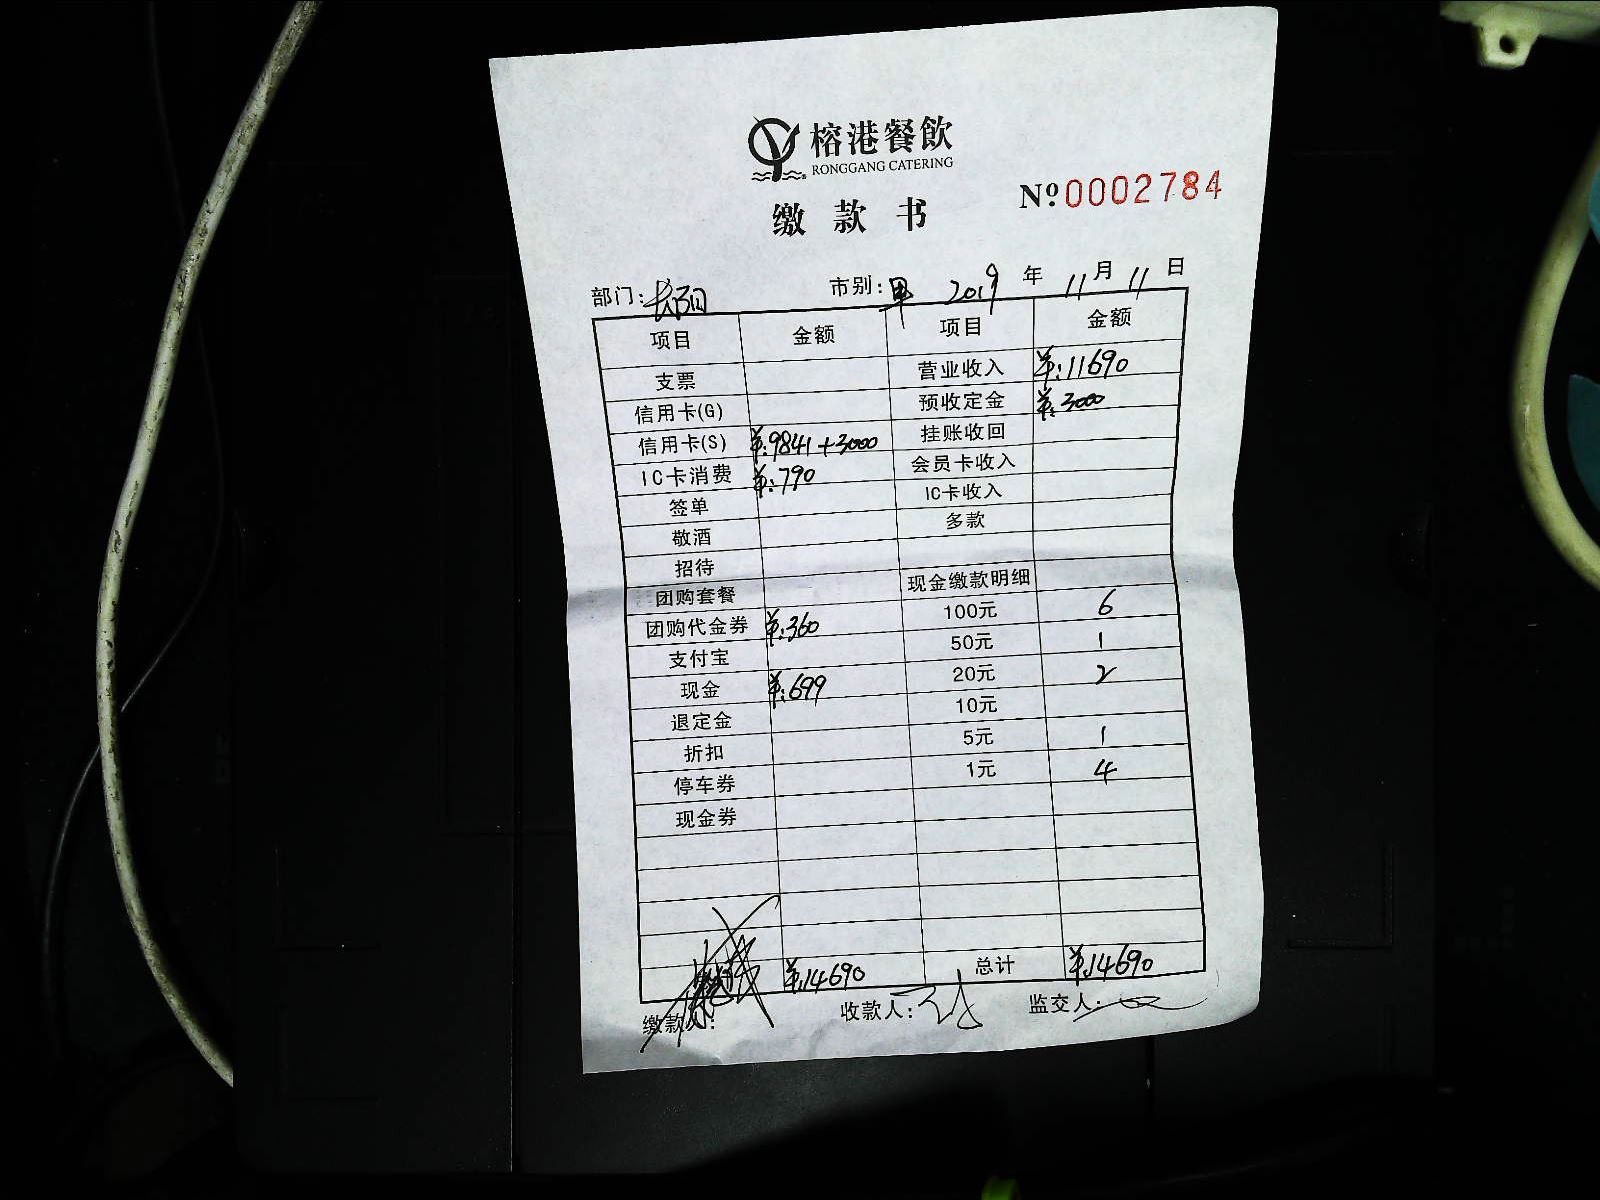 榕港餐飲
RONGGANG CATERING
缴款书
№0002784
部门: 市别: 2019年11月11日
项目 金额 项目 金额
支票 营业收入 ¥:11690
信用卡(G) 预收定金 ¥:3000
信用卡(S) ¥:9841+3000 挂账收回
IC卡消费 ¥:790 会员卡收入
签单 IC卡收入
敬酒 多款
招待
团购套餐 现金缴款明细
团购代金券 ¥:360 100元 6
支付宝 50元 1
现金 ¥:699 20元 2
退定金 10元
折扣 5元 1
停车券 1元 4
现金券
¥:14690 总计 ¥:14690
缴款人: 收款人: 监交人: